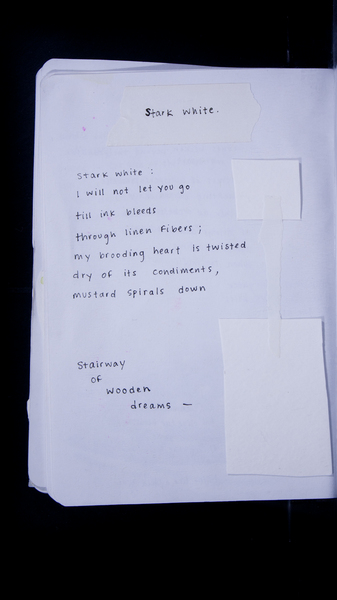 Stark White.
Stark White :
I will not let you go
till ink bleeds
through linen fibers ;
my brooding heart is twisted
dry of its condiments,
mustard spirals down
Stairway
of
wooden
dreams —